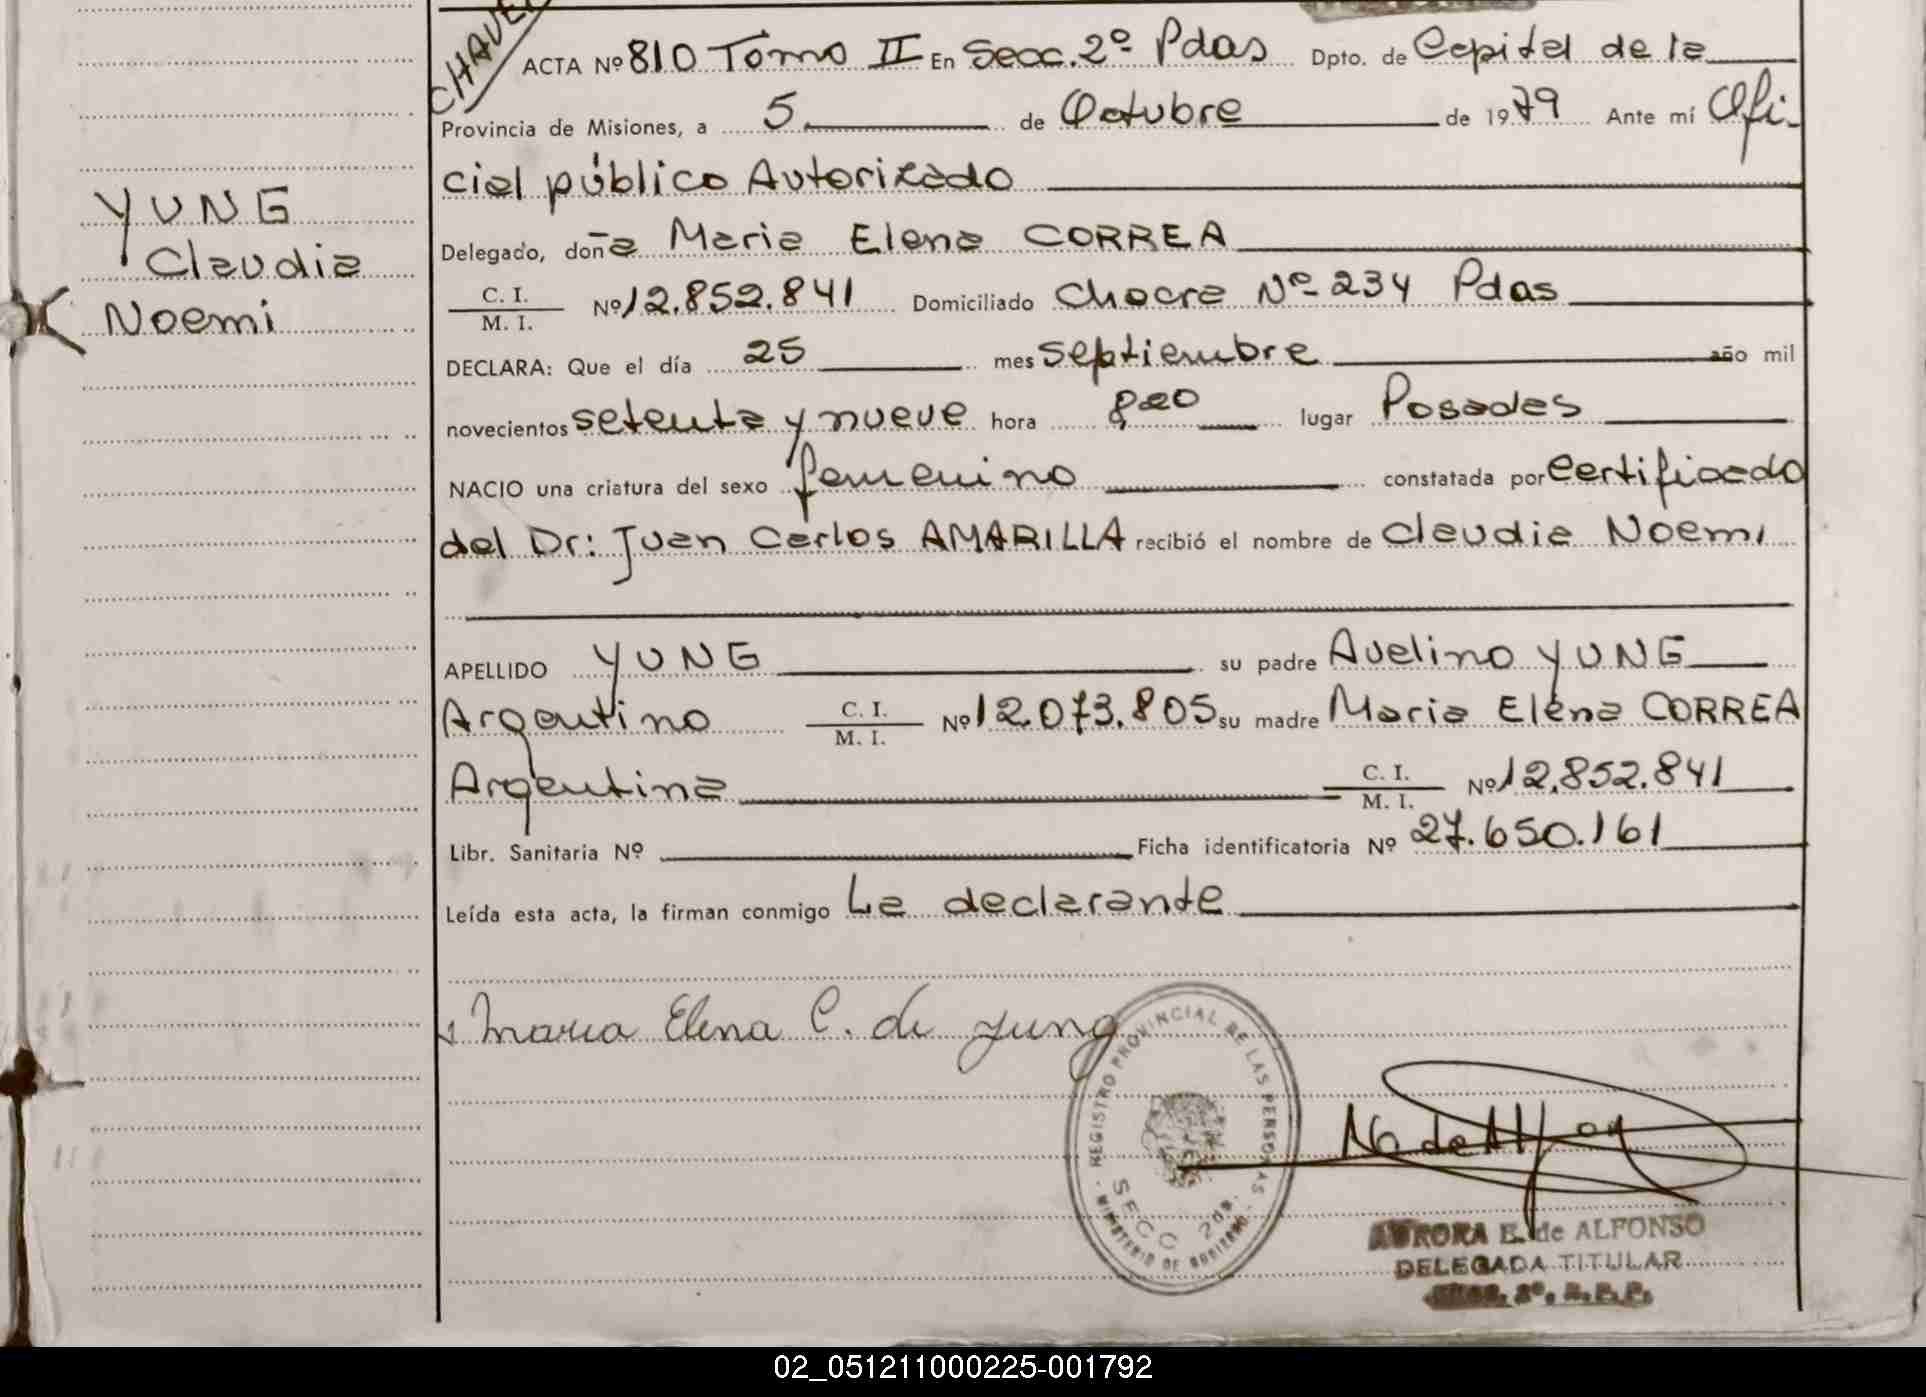 CHAVEZ
ACTA Nº 810 Tomo II En Secc. 2º Pdas Dpto. de Capital de la
Provincia de Misiones, a 5 de Octubre de 1979 Ante mí Ofi-
cial público Autorizado
Delegado, doña Maria Elena CORREA
C. I.
M. I. Nº 12.852.841 Domiciliado Chacra Nº 234 Pdas
DECLARA: Que el día 25 mes septiembre año mil
novecientos setenta y nueve hora 820 lugar Posadas
NACIO una criatura del sexo femenino constatada por Certificado
del Dr: Juan Carlos AMARILLA recibió el nombre de Claudia Noemi
APELLIDO YUNG su padre Avelino YUNG
Argentino C. I.
M. I. Nº 12.073.805 su madre Maria Elena CORREA
Argentina C. I.
M. I. Nº 12.852.841
Libr. Sanitaria Nº Ficha identificatoria Nº 27.650.161
Leída esta acta, la firman conmigo La declarante
Maria Elena C. de Yung
YUNG
Claudia
Noemi
REGISTRO PROVINCIAL DE LAS PERSONAS
SECC 2da.
MINISTERIO DE GOBIERNO
AURORA E. de ALFONSO
DELEGADA TITULAR
02_051211000225-001792